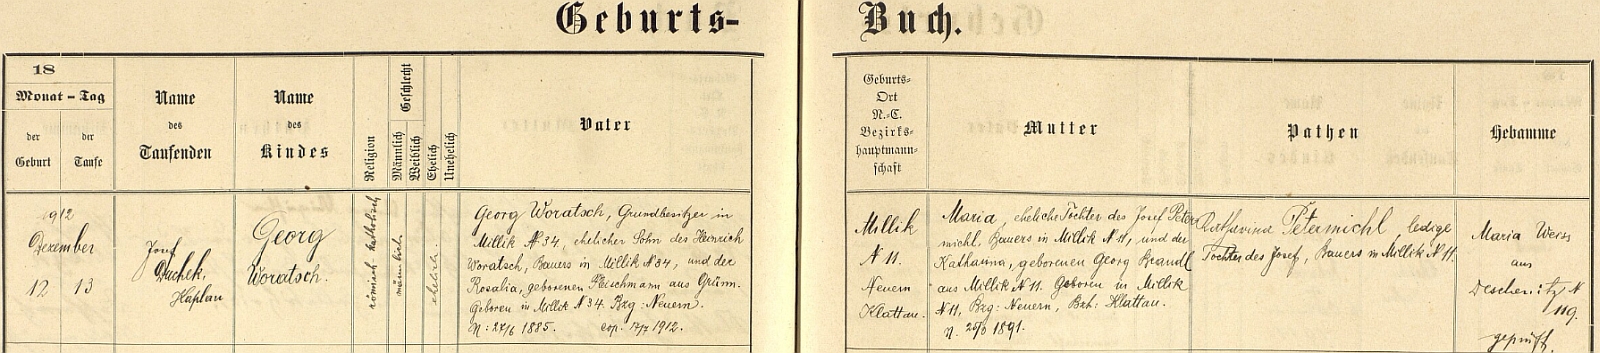 Geburts-
Buch.
18
Monat - Tag
der Geburt
der Taufe
Name des Taufenden
Name des Kindes
Religion
Geschlecht
Männlich
Weiblich
Ehelich
Unehelich
Vater
1912
Dezember
12 13
Josef
Duchek.
Kaplan
Georg
Woratsch.
römisch-katholisch
männlich
ehelich.
Georg Woratsch, Grundbesitzer in
Millik N° 34, ehelicher Sohn des Heinrich
Woratsch, Bauers in Millik N 34, und der
Rosalia, geborenen Fleischmann aus Grünn.
Geboren in Millik N 34. Bzg: Neuern.
N: 27/6 1885. cop. 1912.
Geburts-
Ort
N.-C.
Bezirks-
hauptmann-
schaft
Mutter
Pathen
Hebamme
Millik
N 11.
Neuern
Klattau.
Maria, eheliche Tochter des Josef Peter
michl, Bauers in Millik N 11, und der
Katharina, geborenen Georg Brandl
aus Millik N 11. Geboren in Millik
N 11, Bzg: Neuern, Bzh: Klattau.
N. 1891.
Katharina Petermichl, ledige
Tochter des Josef, Bauers in Millik N 11.
Maria Weiss
aus
Deschenitz N
119.
geprüft.